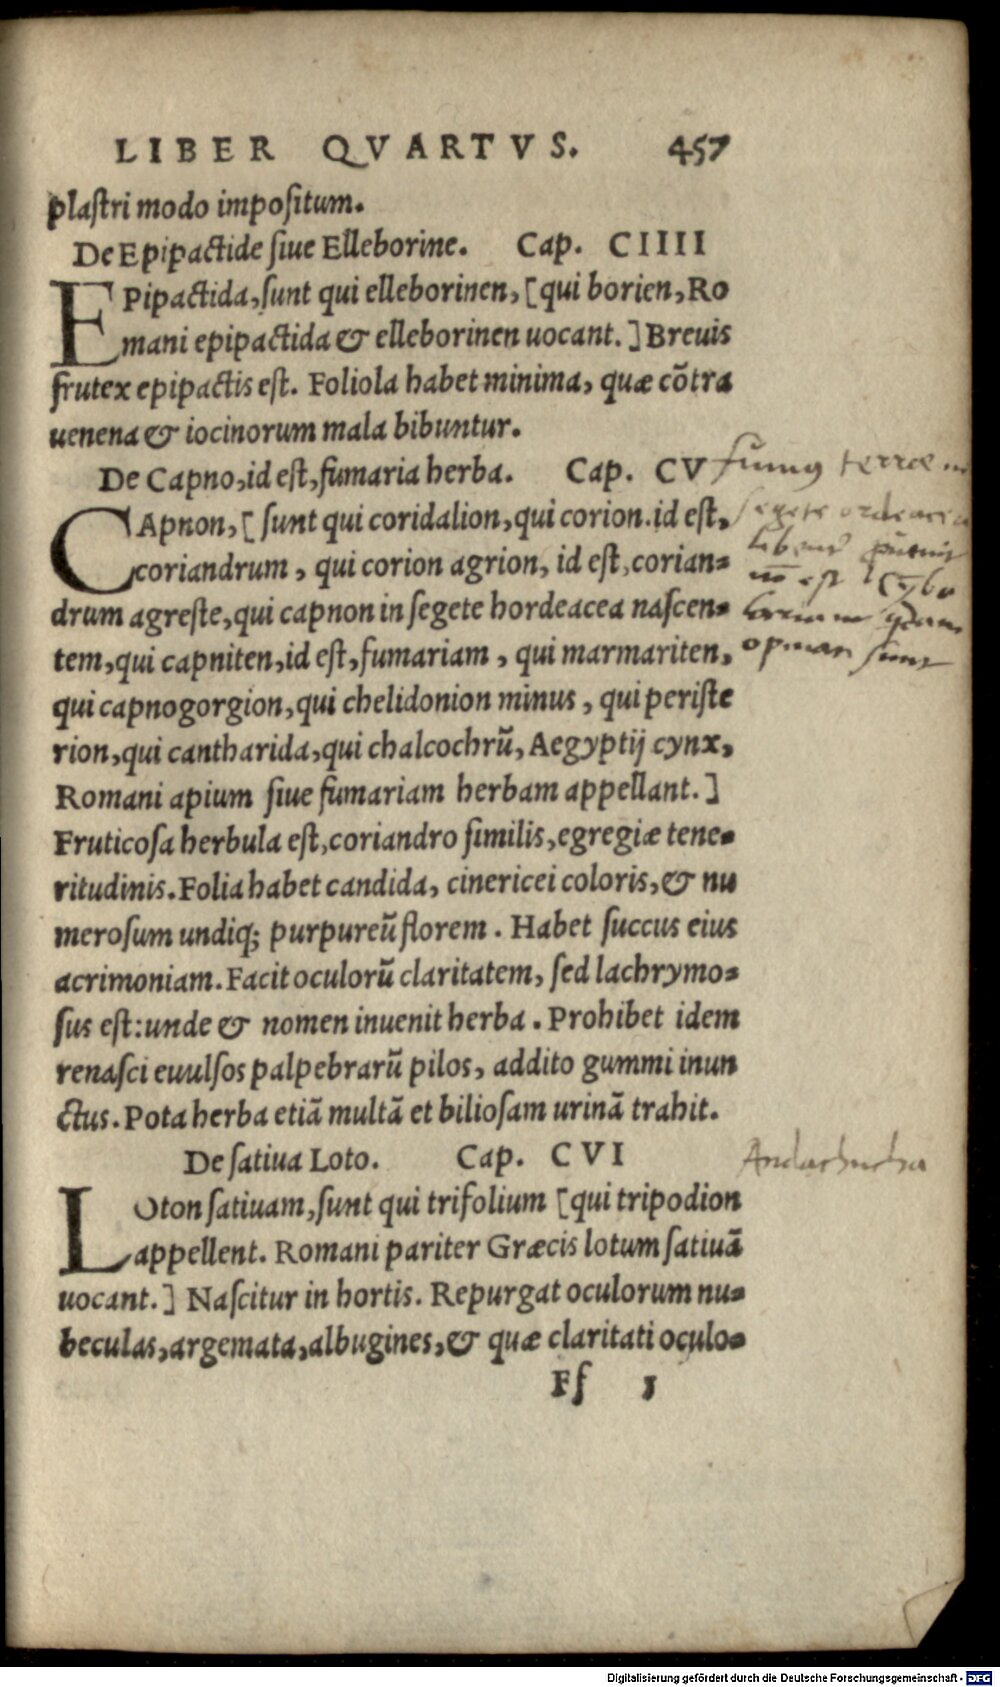 LIBER QVARTVS. 457
plaſtri modo impoſitum.
De Epipactide ſiue Elleborine. Cap. CIIII
EPipactida, ſunt qui elleborinen, [qui borien, Ro
mani epipactida & elleborinen uocant.] Breuis
frutex epipactis eſt. Foliola habet minima, quæ cõtra
uenena & iocinorum mala bibuntur.
De Capno, id eſt, fumaria herba. Cap. CV
fumus terrae in
CApnon, [ſunt qui coridalion, qui corion. id eſt,
segete ordeacea
coriandrum, qui corion agrion, id eſt, corian-
drum agreſte, qui capnon in ſegete hordeacea naſcen-
tem, qui capniten, id eſt, fumariam, qui marmariten,
sunt
qui capnogorgion, qui chelidonion minus, qui periſte
rion, qui cantharida, qui chalcochrũ, Aegyptij cynx,
Romani apium ſiue fumariam herbam appellant.]
Fruticoſa herbula eſt, coriandro ſimilis, egregiæ tene-
ritudinis. Folia habet candida, cinericei coloris, & nu
meroſum undiq; purpureũ florem. Habet ſuccus eius
acrimoniam. Facit oculorũ claritatem, ſed lachrymo-
ſus eſt: unde & nomen inuenit herba. Prohibet idem
renaſci euulſos palpebrarũ pilos, addito gummi inun
ctus. Pota herba etiã multã et bilioſam urinã trahit.
De ſatiua Loto. Cap. CVI
LOton ſatiuam, ſunt qui trifolium [qui tripodion
appellent. Romani pariter Græcis lotum ſatiuã
uocant.] Naſcitur in hortis. Repurgat oculorum nu-
beculas, argemata, albugines, & quæ claritati oculo-
Ff 1
Digitalisierung gefördert durch die Deutsche Forschungsgemeinschaft - DFG